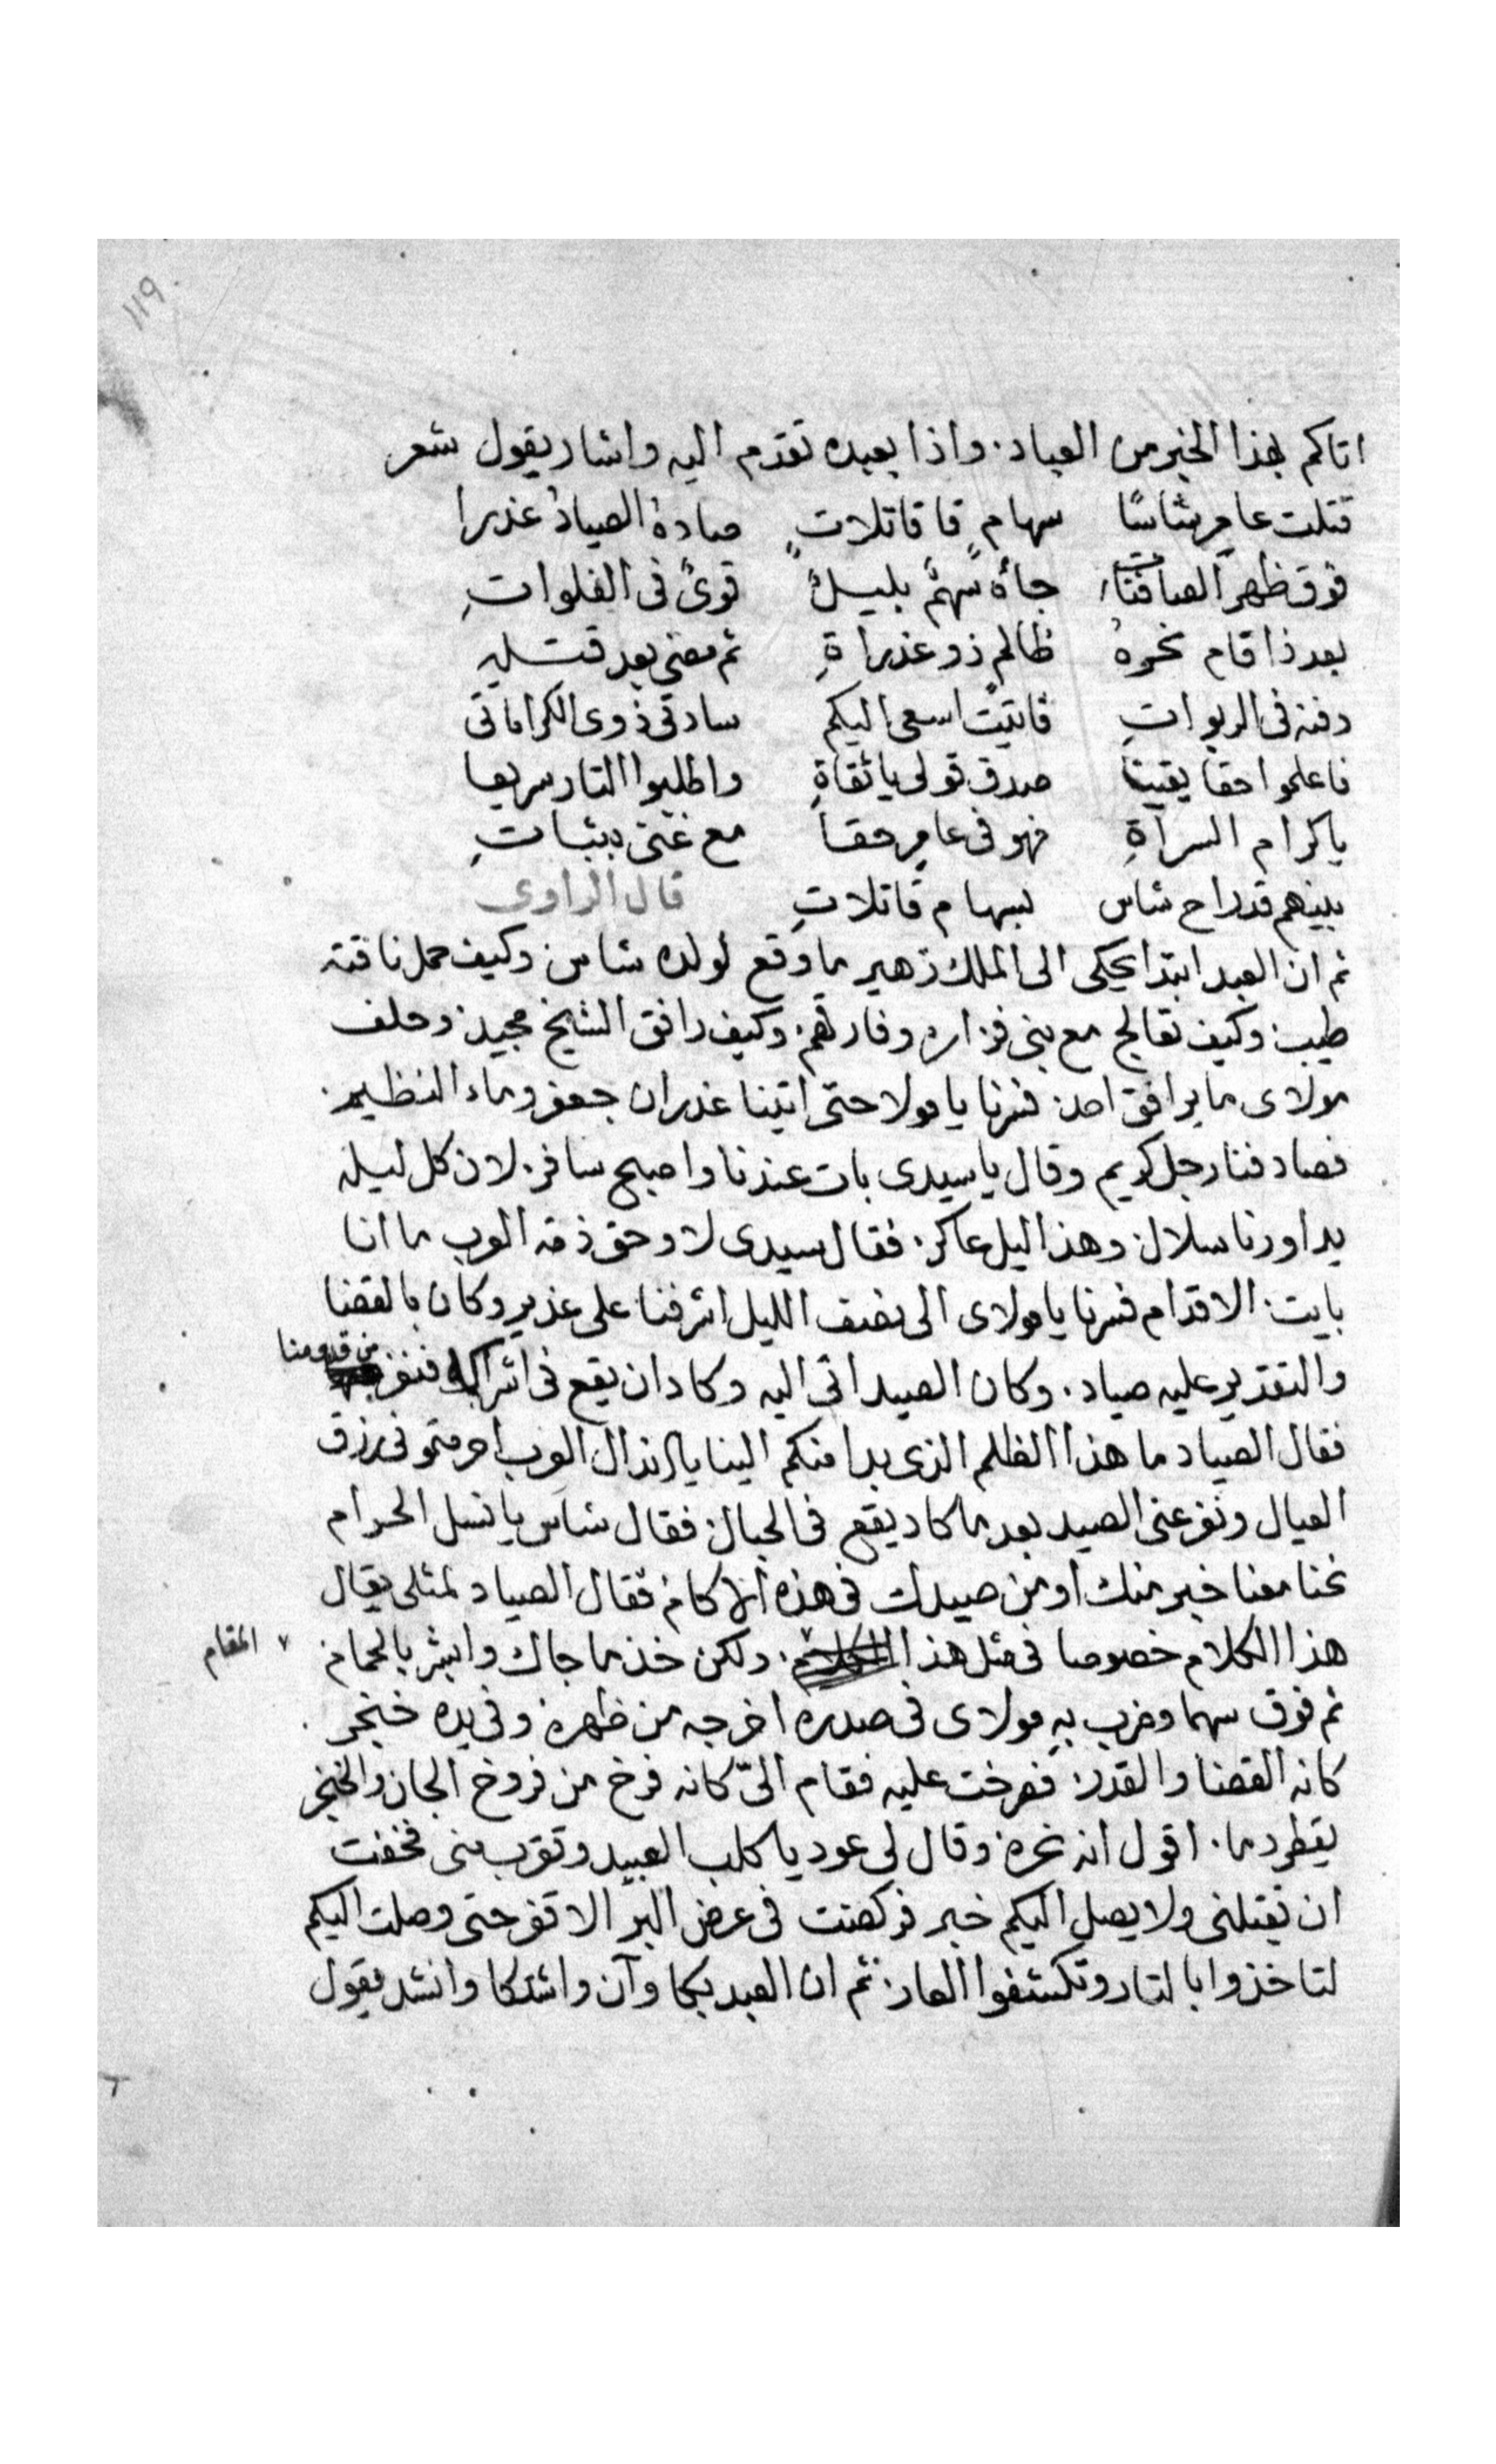 ١١٩
اتاكم بهذا الخبر من العباد. واذا بعبده تقدم اليه واشار يقول شعر
قتلت عامر شاسًا سهامٍ قا قاتلاتٍ صادهُ الصيادُ غدرا
فوق ظهر العيافتا جاهُ سهمٌ بليلٍ قوىً فى الفلواتِ
بعد ذا قام نحوهُ ظالم ذو غدراةِ ثم مضى بعد قتله
دفنه فى الربواتِ فاتيت اسعى اليكم سادتى ذوى الكراماتى
فاعلموا حقا يقينا صدق قولى يا ثقاةِ واطلبوا التار سريعا
يا كرام السراةِ فهو فى عامر حقاً مع غنى بثباتِ
بينهم قد راح شاس بسهام قاتلاتِ قال الراوى
ثم ان العبد ابتدا يحكى الى الملك زهير ما وقع لولده شاس وكيف حمل ناقته
طيب وكيف تعالج مع بنى فزاره وفارقهم وكيف رافق الشيخ مجيد وحلف
مولاى ما يرافق احد فسرنا يا مولا حتى اتينا غدران جعفر وماء النظيم.
فصادفنا رجل كريم وقال يا سيدى بات عندنا واصبح سافر. لان كل ليله
يداورنا سلال وهذا اليل عاكر. فقال سيدى لا وحق ذمة العرب ما انا
بايت. الا قدام فسرنا يا مولاى الى نصف الليل اشرفنا على غدير وكان بالقضا
والتقدير عليه صياد. وكان الصيد اتى اليه وكاد ان يقع فى اشراكه فنفر من قدومنا
فقال الصياد ما هذا الظلم الذى بدا منكم الينا يا اندال العرب احرمتمو فى رزق
العيال ونفر عنى الصيد بعد ما كاد يقع فى الحبال فقال شاس يا نسل الحرام
نحنا معنا خير منك او من صيدك فى هذه الاكام فقال الصياد لمثلى يقال
هذا الكلام خصوصا فى مثل هذا المقام. ولكن خذ ما جاك وابشر بالحمام
ثم فوق سهما وضرب بهِ مولاى فى صدره اخرجه من ظهره وفى يده خنجر
كانه القضا والقدر فصرخت عليه فقام الىّ كانه فرخ من فروخ الجان والخنجر
يقطر دما. اقول انه نحره وقال لى عود يا كلب العبيد وتقرب منى فخفت
ان يقتلنى ولا يصل اليكم خبر فركضت فى عرض البر الاقفر حتى وصلت اليكم
لتاخذوا بالتار وتكشفوا العار ثم ان العبد بكا وآن واشتكا وانشد يقول